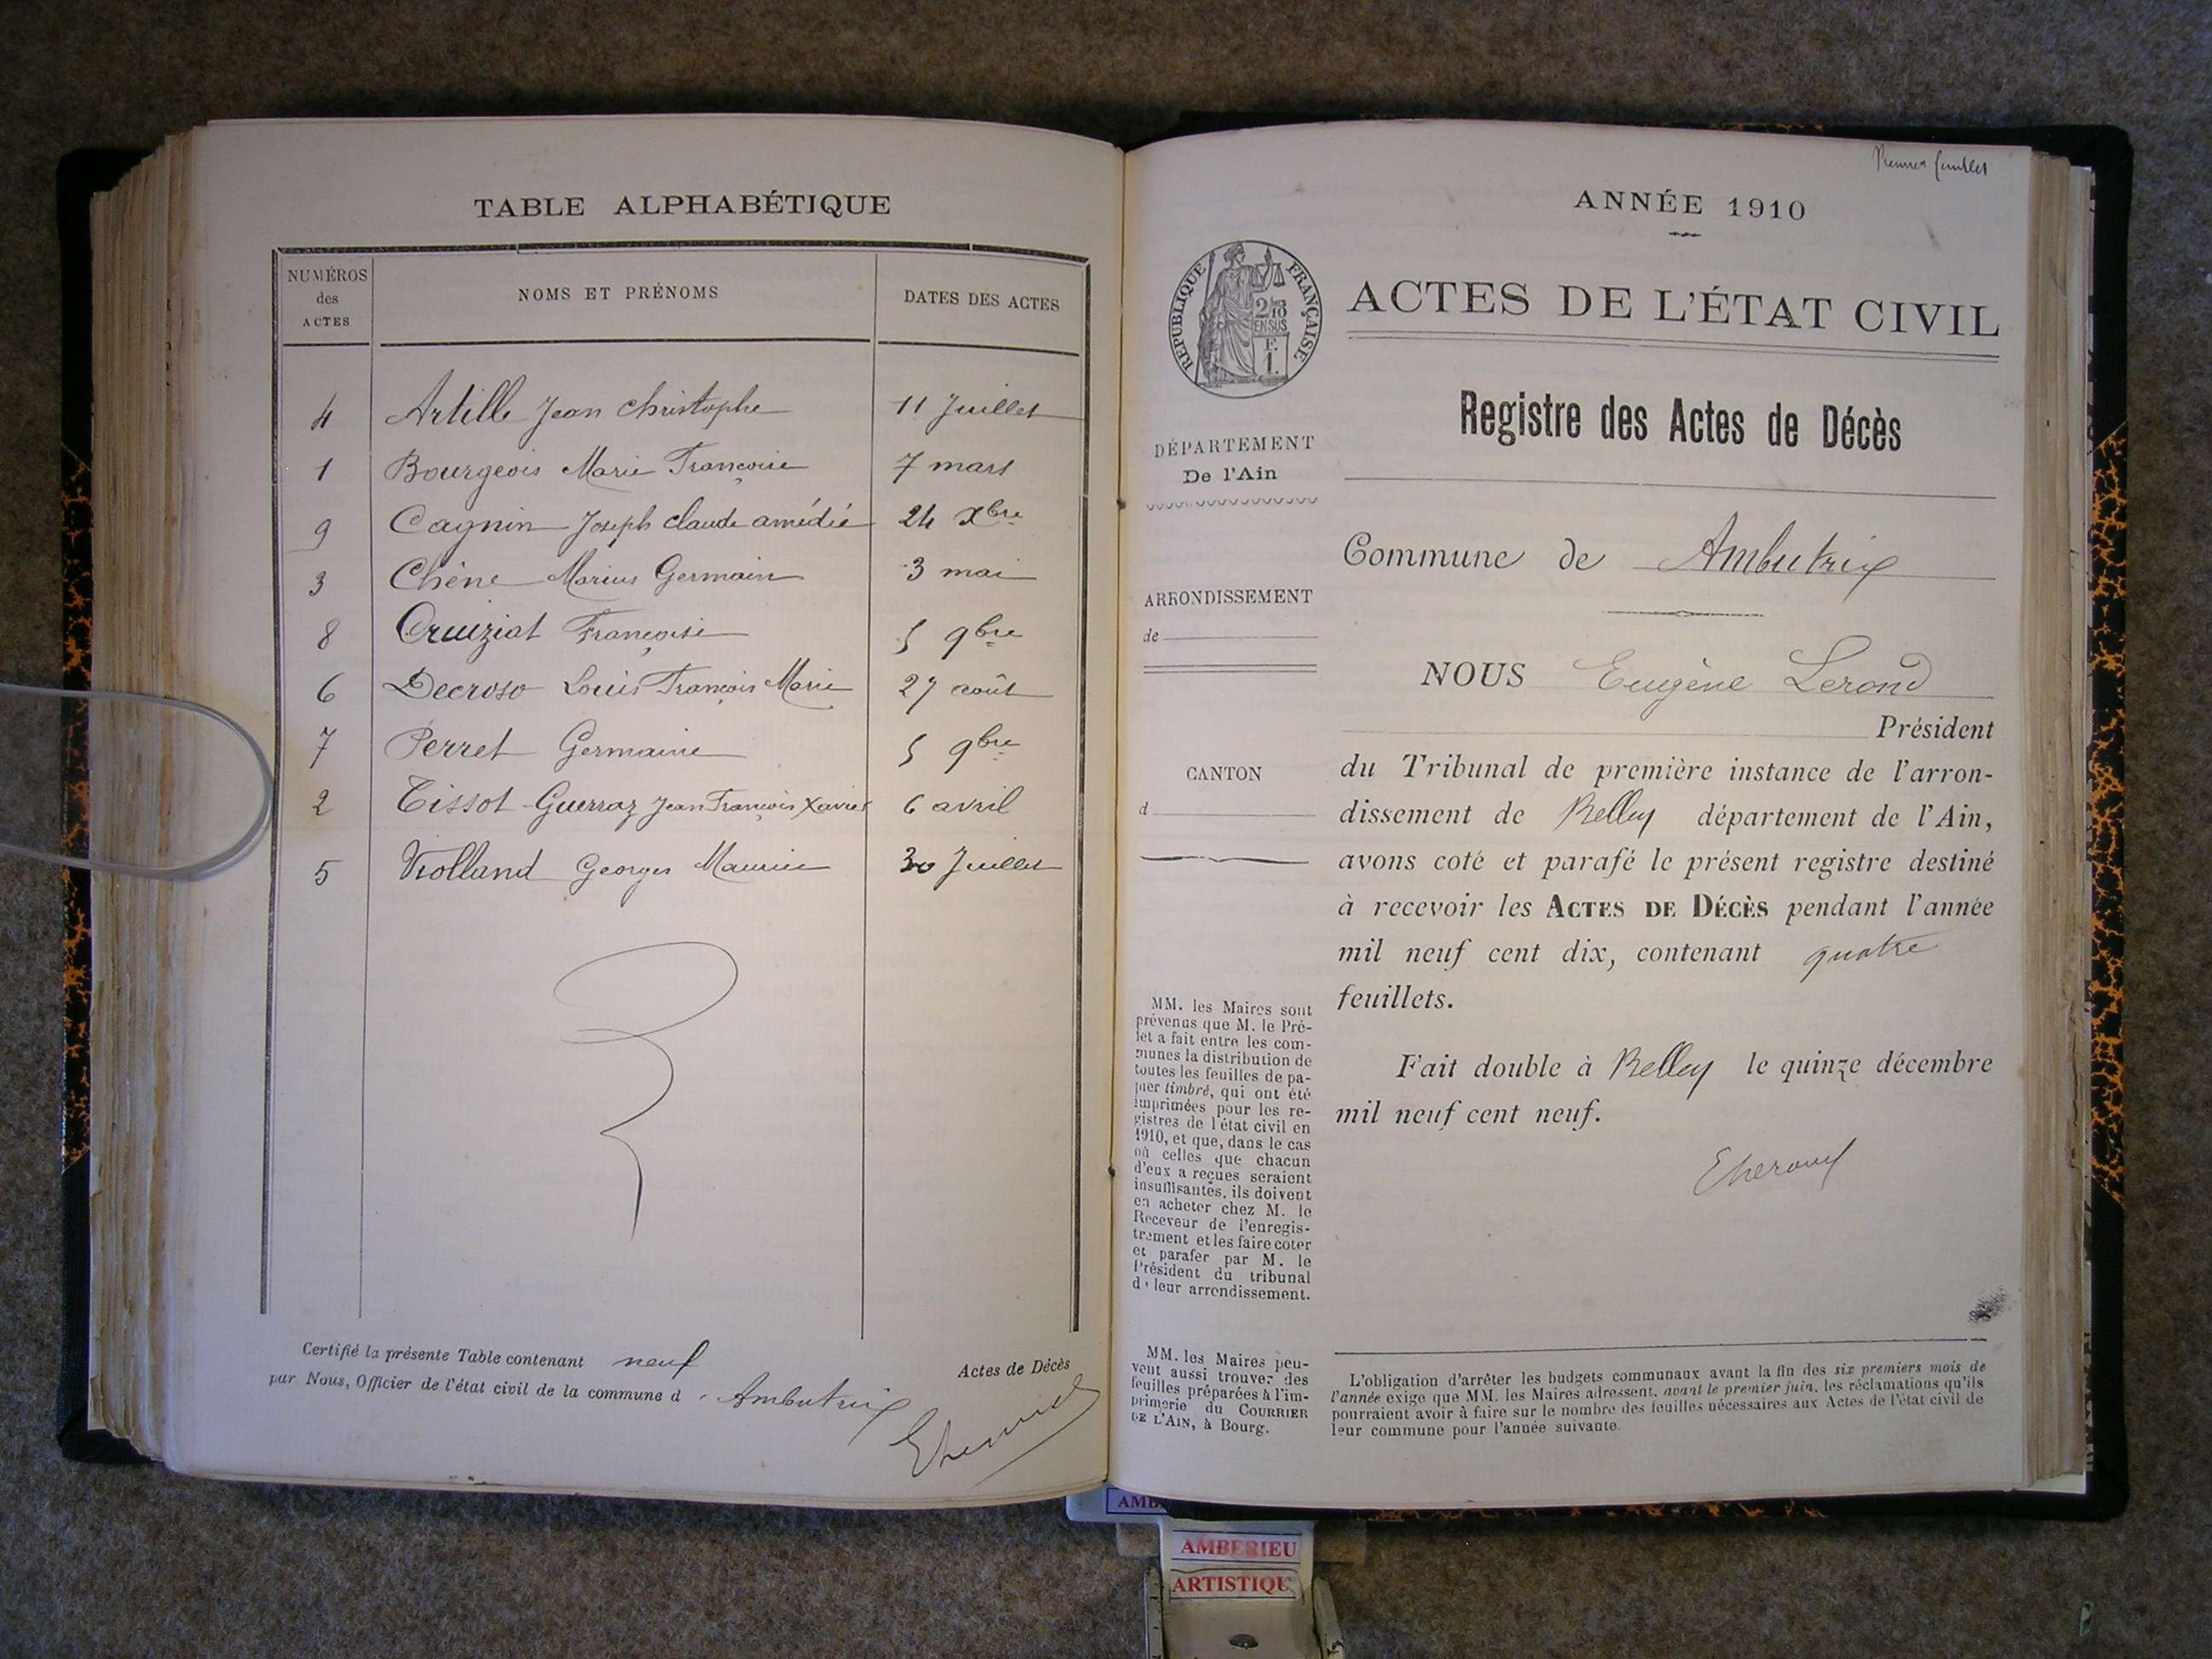 TABLE ALPHABÉTIQUE
NUMÉROS des ACTES
NOMS ET PRÉNOMS
DATES DES ACTES
4 Artille Jean Christophe 11 Juillet
1 Bourgeois Marie Françoise 7 mars
9 Cagnin Joseph Claude amédié 24 Xbre
3 Chêne Marius Germain 3 mai
8 Cruiziat Françoise 5 9bre
6 Decroso Louis François Marie 27 août
7 Perret Germaine 5 9bre
2 Tissot-Guerraz Jean François Xavier 6 avril
5 Violland Georges Maurice 30 Juillet
Certifié la présente Table contenant neuf Actes de Décès
par Nous, Officier de l'état civil de la commune d'Ambutrix
Premier feuillet
ANNÉE 1910
RÉPUBLIQUE FRANÇAISE
2/10
EN SUS
F.
1.
ACTES DE L'ÉTAT CIVIL
Registre des Actes de Décès
DÉPARTEMENT
De l'Ain
ARRONDISSEMENT
de
CANTON
d
Commune de Ambutrix
NOUS Eugène Lerond
Président
du Tribunal de première instance de l'arron-
dissement de Belley département de l'Ain,
avons coté et parafé le présent registre destiné
à recevoir les ACTES DE DÉCÈS pendant l'année
mil neuf cent dix, contenant quatre
feuillets.
Fait double à Belley le quinze décembre
mil neuf cent neuf.
MM. les Maires sont
prévenus que M. le Pré-
fet a fait entre les com-
munes la distribution de
toutes les feuilles de pa-
pier timbré, qui ont été
imprimées pour les re-
gistres de l'état civil en
1910, et que, dans le cas
où celles que chacun
d'eux a reçues seraient
insuffisantes, ils doivent
en acheter chez M. le
Receveur de l'enregis-
trement et les faire coter
et parafer par M. le
Président du tribunal
de leur arrondissement.
MM. les Maires peu-
vent aussi trouver des
feuilles préparées à l'im-
primerie du COURRIER
DE L'AIN, à Bourg.
L'obligation d'arrêter les budgets communaux avant la fin des six premiers mois de
l'année exige que MM. les Maires adressent, avant le premier juin, les réclamations qu'ils
pourraient avoir à faire sur le nombre des feuilles nécessaires aux Actes de l'état civil de
leur commune pour l'année suivante.
AMB
AMBERIEU
ARTISTIQU